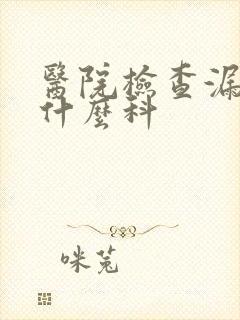 醫院檢查漏
什麼科
咪兔